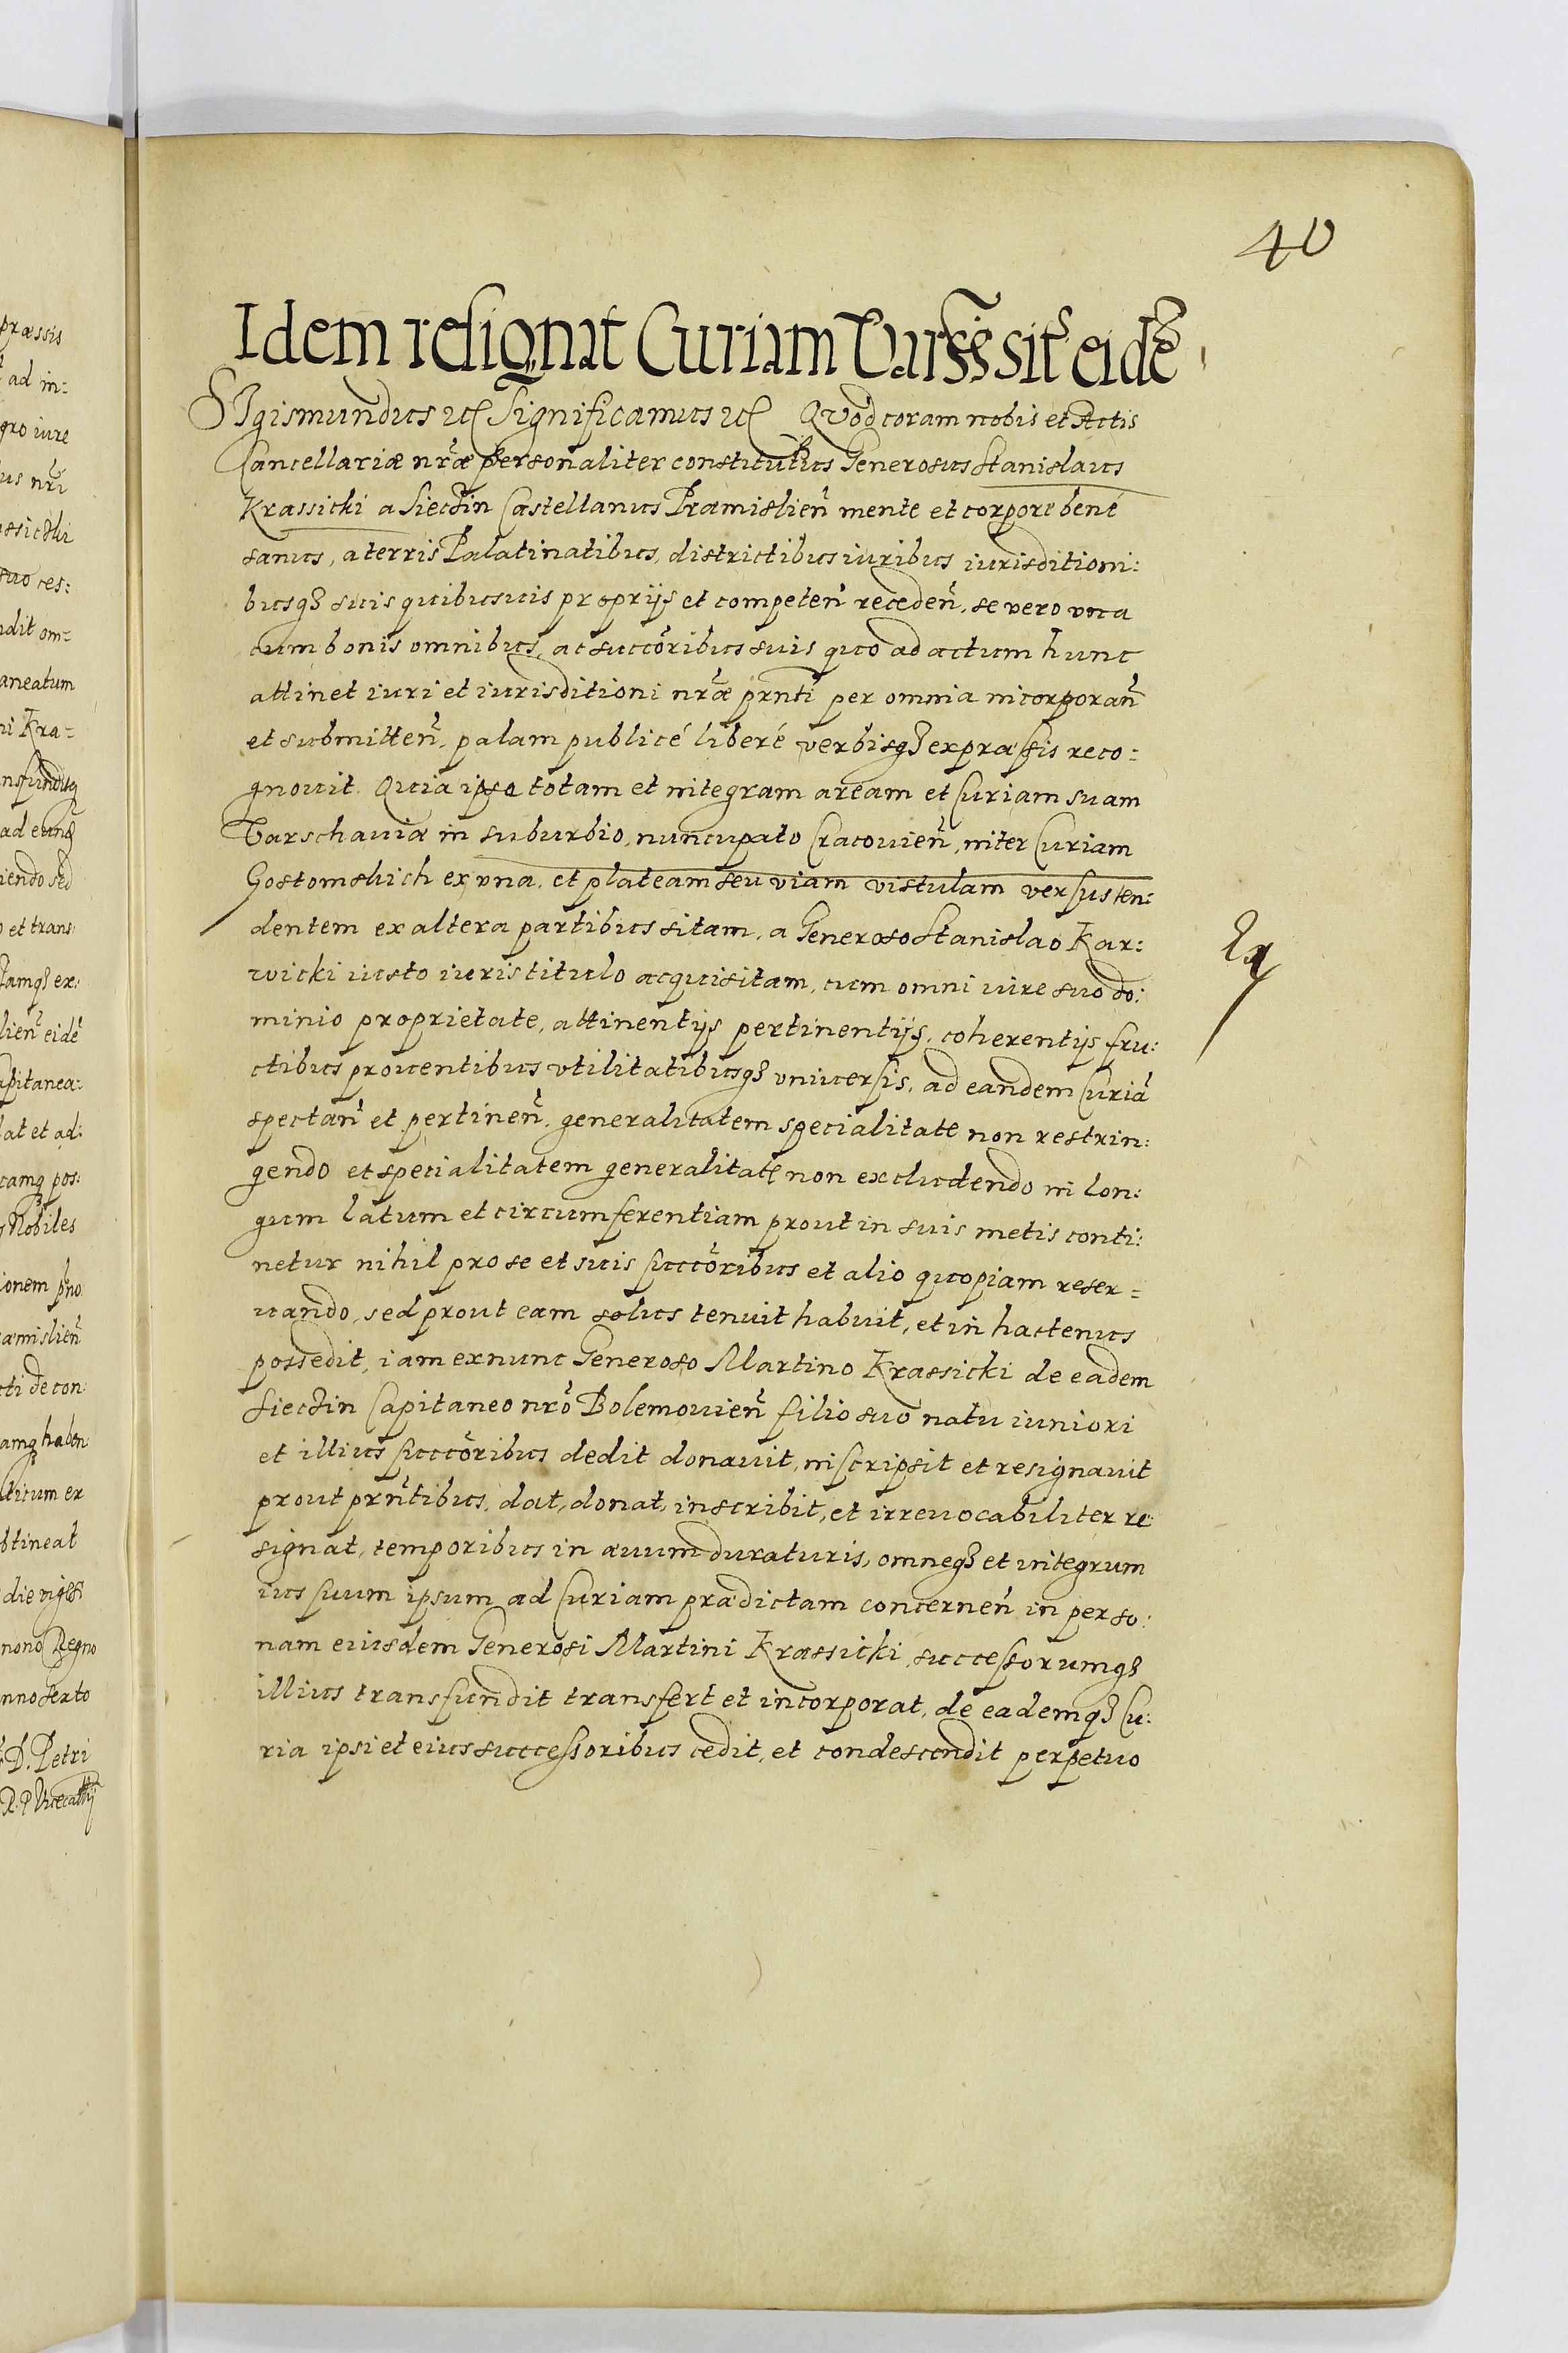 40
Idem resignat Curiam Varss: sit: eidē
SIgismundus etc Significamus etc Quod coram nobis et Actis
Cancellariæ nr̃æ personaliter constitutus Generosus Stanislaus
Krassicki a Siectin Castellanus Præmislien̄ mente et corpore bené
sanus, a terris Palatinatibus, districtibus iuribus iurisditioni:
busq3 suis quibusuis proprijs et competen̄ receden̄, se vero vna
cum bonis omnibus, ac succōribus suis quo ad actum hunc
attinet iuri et iurisditioni nr̃æ prn̄ti per omnia incorporan̄
et submitten̄, palam publicé liberé verbisq3 expræssis reco:
gnouit. Quia ipse totam et integram aream et Curiam suam
Varschauiæ in suburbio, nuncupato Cracouien̄, inter Curiam
Gostomskich ex vna, et plateam seu viam vistulam versus ten:
dentem ex altera partibus sitam, a Generoso Stanislao Kar:
wicki iusto iuris titulo acquisitam, cum omni iure suo do:
minio proprietate, attinentijs pertinentijs, coherentijs fru:
ctibus prouentibus vtilitatibusq3 vniuersis, ad eandem Curiā
spectan̄ et pertinen̄, generalitatem specialitate non restrin:
gendo et specialitatem generalitate non excludendo in lon:
gum latum et circumferentiam prout in suis metis conti:
netur nihil pro se et suis succōribus et alio quopiam reser=
uando, sed prout eam solus tenuit habuit, et in hactenus
possedit, iam ex nunc Generoso Martino Krassicki de eadem
Siectin Capitaneo nr̃o Bolemouien̄ filio suo natu iuniori
et illius succōribus dedit donauit, inscripsit et resignauit
prout prn̄tibus, dat, donat, inscribit, et irreuocabiliter re
signat, temporibus in æuum duraturis, omneq3 et integrum
ius suum ipsum ad Curiam prædictam concernen̄ in perso:
nam eiusdem Generosi Martini Krassicki, successorumq3
illius transfundit transfert et incorporat, de eademq3 Cu:
ria ipsi et eius successoribus cedit, et condescendit perpetuo